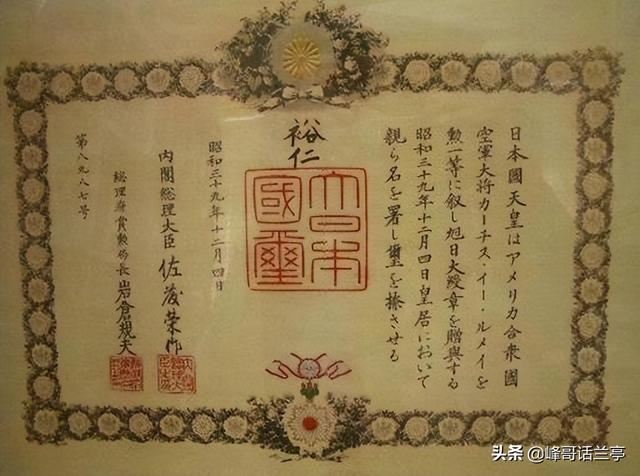 日本國天皇はアメリカ合衆國
空軍大将カーチス・イー・ルメイを
勲一等に叙し旭日大綬章を贈與する
昭和三十九年十二月四日皇居において
親ら名を署し璽を捺させる
裕仁
大日本
國璽
昭和三十九年十二月四日
内閣総理大臣 佐藤栄作
総理府賞勲局長 岩倉規夫
第八九八七号
头条 @峰哥话兰亭